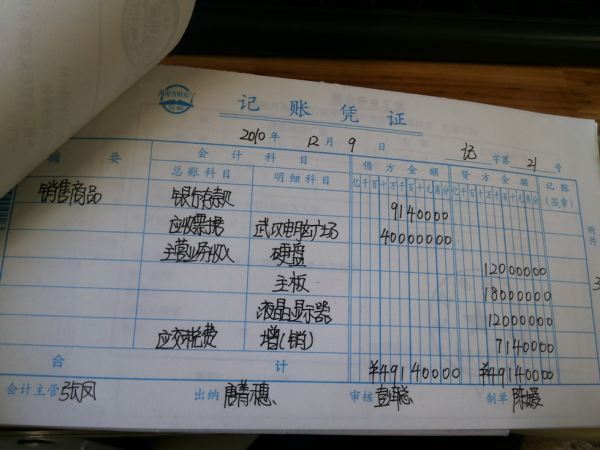 记账凭证
2010年 12月 9日 记字第 21号
摘要 会计科目 借方金额 贷方金额 记账(签章)
总账科目 明细科目 亿千百十万千百十元角分 亿千百十万千百十元角分
销售商品 银行存款 9140000
应收票据 武汉电脑广场 40000000
主营业务收入 硬盘 12000000
主板 18000000
液晶显示器 12000000
应交税费 增(销) 7140000
合计 ¥49140000 ¥49140000
附件
会计主管 张风 出纳 唐青穗 审核 制单 陈媛